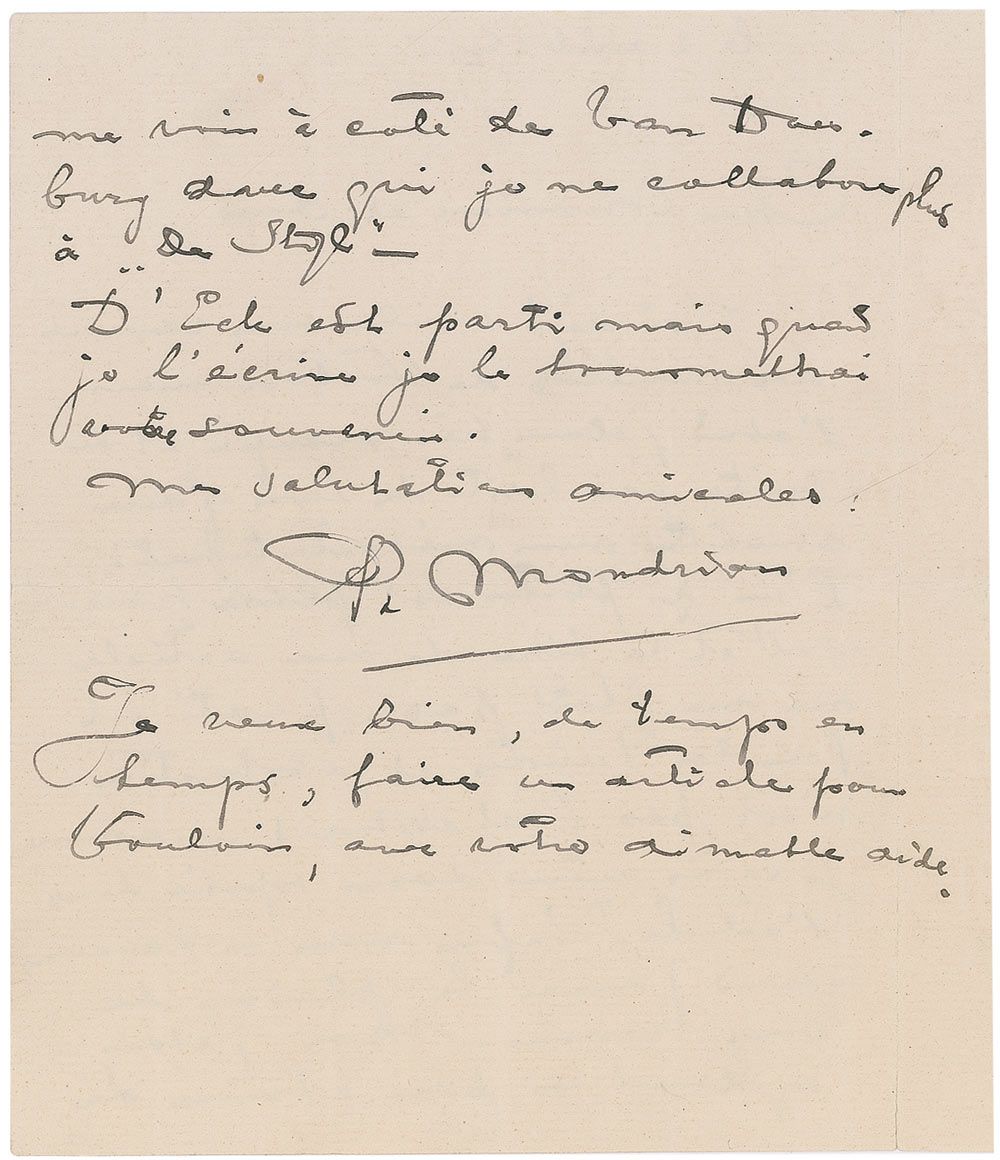 me vois à coté de Van Does-
burg avec qui je ne collabore plus
à „De Styl" —
D'Eck est parti mais quand
je l'écrire je le transmettrai
votre souvenir.
Mes salutations amicales.
P. Mondrian
Je veux bien, de temps en
temps, faire un article pour
Vouloir, avec votre aimable aide.